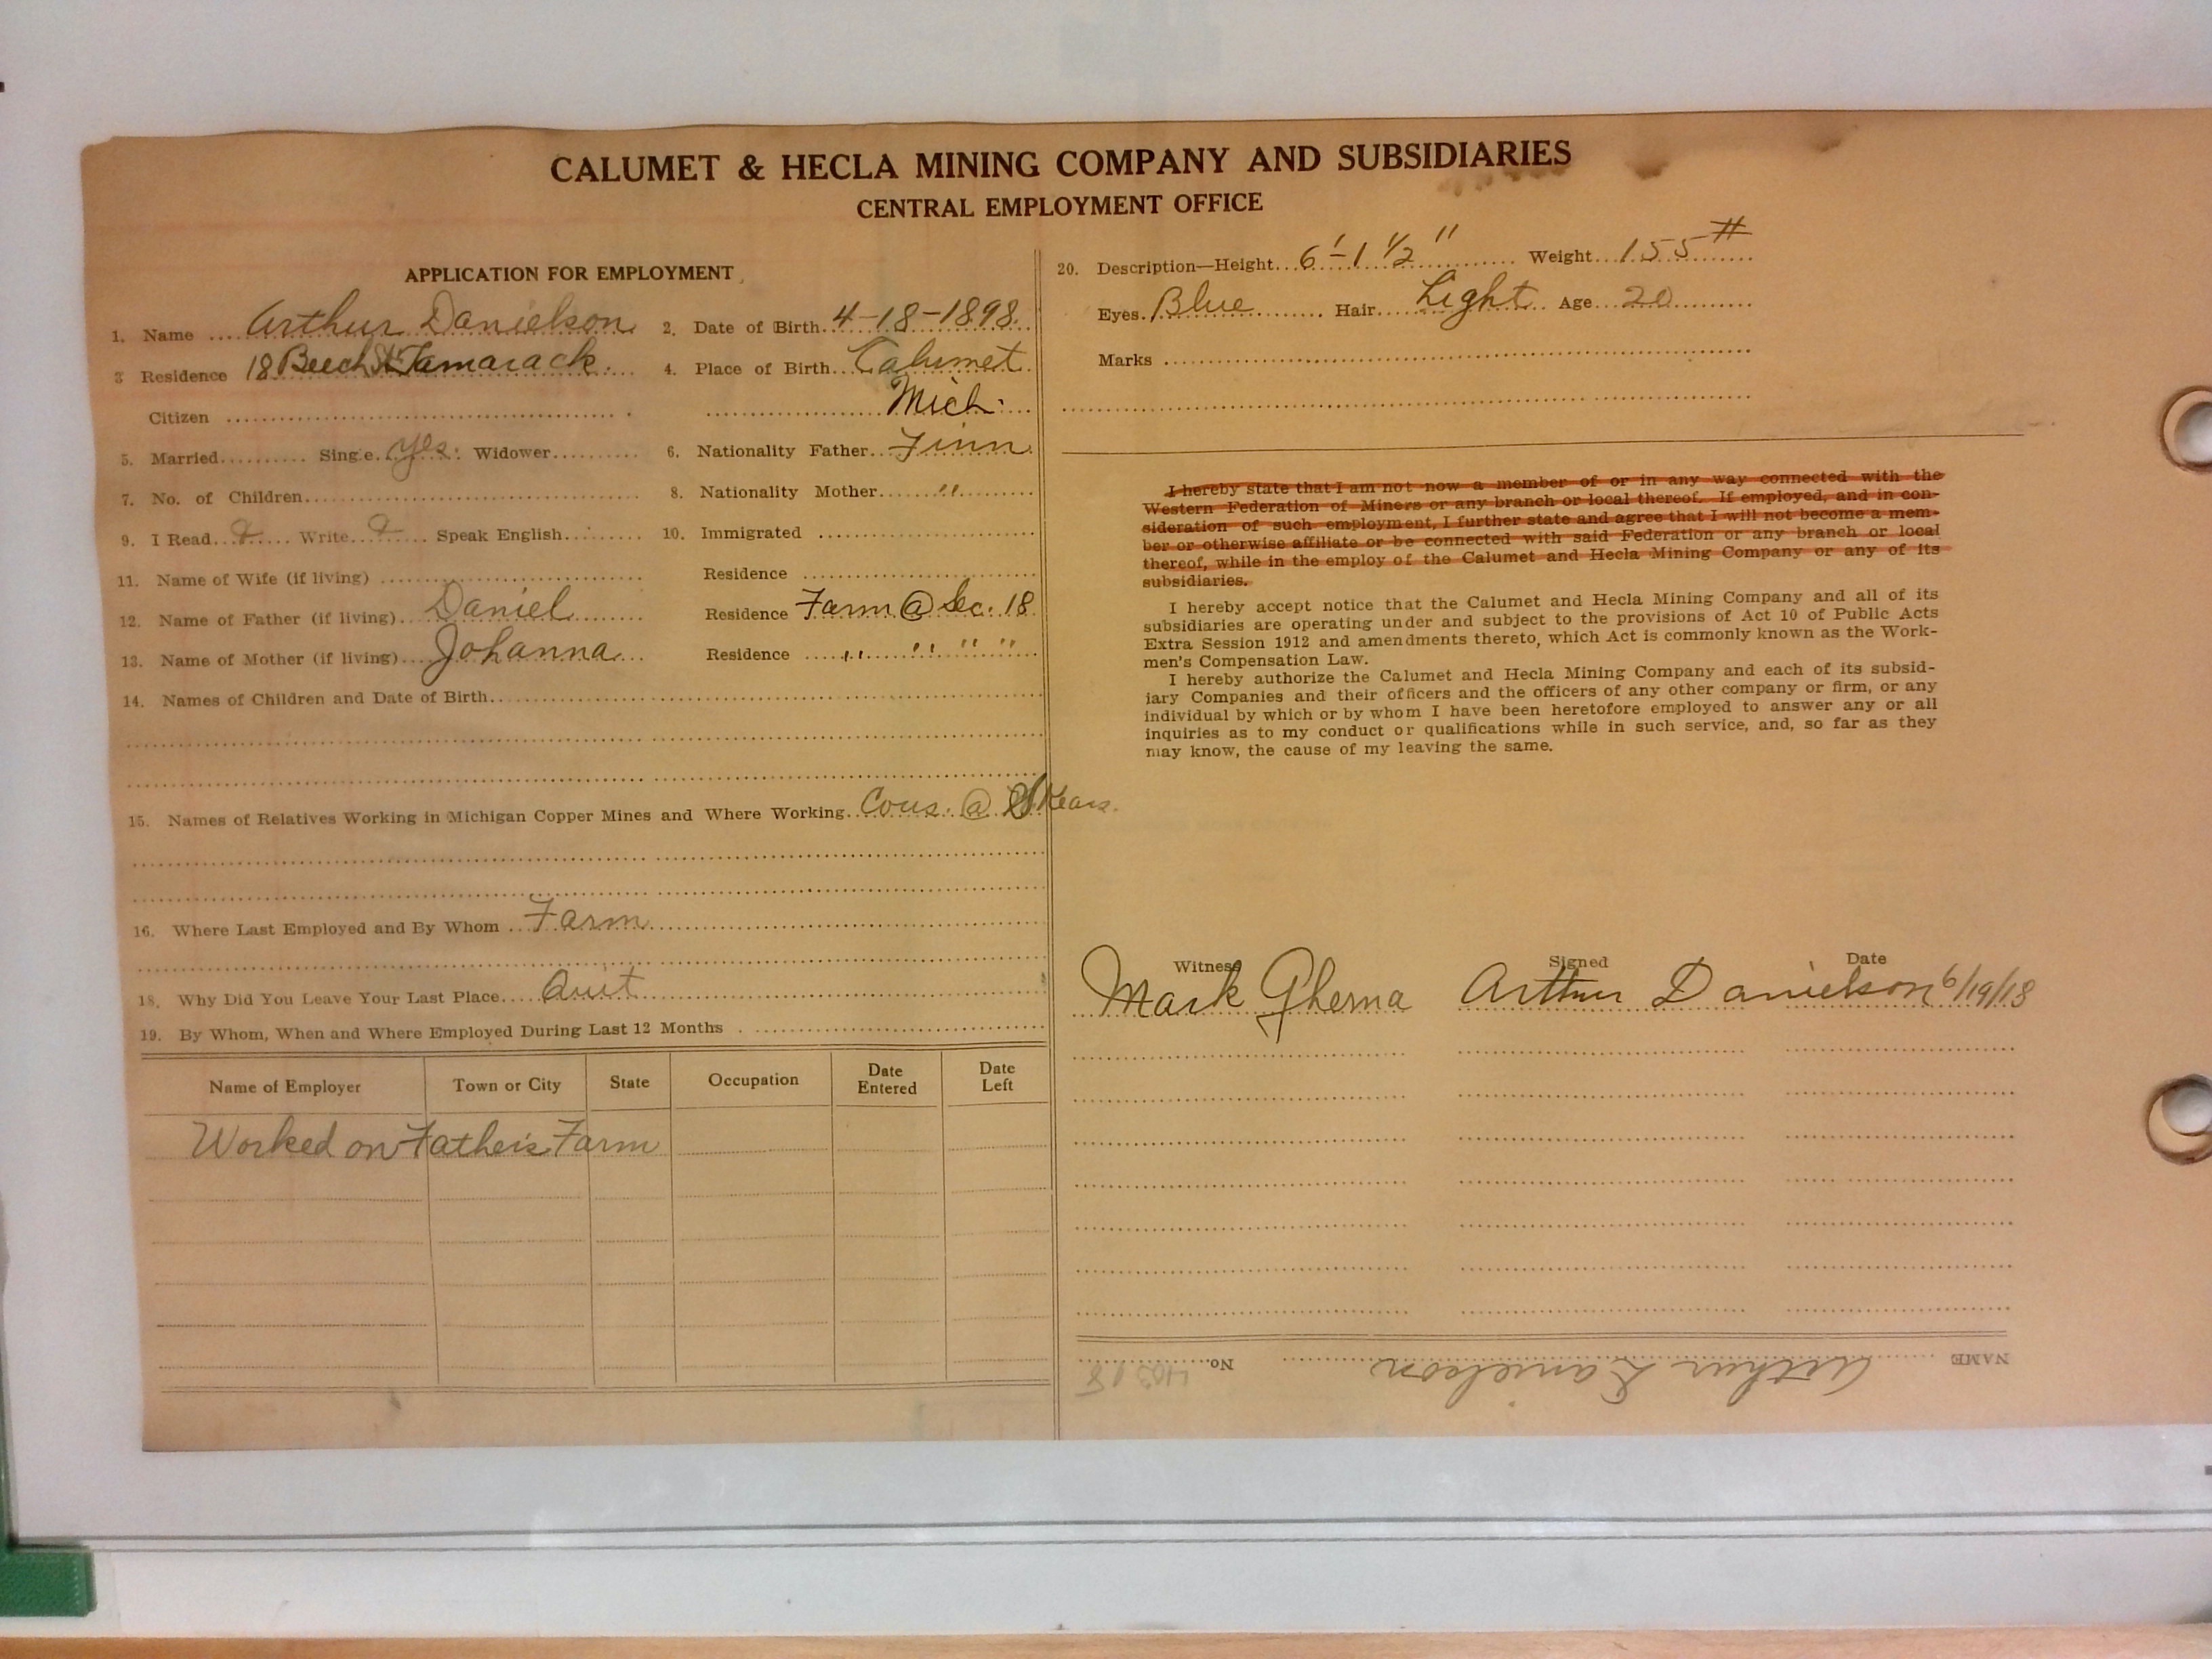 CALUMET & HECLA MINING COMPANY AND SUBSIDIARIES
CENTRAL EMPLOYMENT OFFICE
APPLICATION FOR EMPLOYMENT
1. Name .... Arthur Danielson 2. Date of Birth.. 4-18-1898
3 Residence 18 Beech St Tamarack. 4. Place of Birth... Calumet
Citizen Mich.
5. Married.......... Single. yes. Widower.......... 6. Nationality Father.. Finn
7. No. of Children 8. Nationality Mother "
9. I Read Write Speak English 10. Immigrated
11. Name of Wife (if living) Residence
12. Name of Father (if living) Daniel Residence Farm @ Sec. 18
13. Name of Mother (if living) Johanna Residence " " " "
14. Names of Children and Date of Birth
15. Names of Relatives Working in Michigan Copper Mines and Where Working.. Cous. @ Kears.
16. Where Last Employed and By Whom ... Farm
18. Why Did You Leave Your Last Place.... Quit
19. By Whom, When and Where Employed During Last 12 Months
Name of Employer Town or City State Occupation Date Entered Date Left
Worked on Father's Farm
20. Description—Height... 6'-1 1/2" Weight... 155 #
Eyes. Blue Hair Light Age 20
Marks
I hereby state that I am not now a member of or in any way connected with the
Western Federation of Miners or any branch or local thereof. If employed, and in con-
sideration of such employment, I further state and agree that I will not become a mem-
ber or otherwise affiliate or be connected with said Federation or any branch or local
thereof, while in the employ of the Calumet and Hecla Mining Company or any of its
subsidiaries.
I hereby accept notice that the Calumet and Hecla Mining Company and all of its
subsidiaries are operating under and subject to the provisions of Act 10 of Public Acts
Extra Session 1912 and amendments thereto, which Act is commonly known as the Work-
men's Compensation Law.
I hereby authorize the Calumet and Hecla Mining Company and each of its subsid-
iary Companies and their officers and the officers of any other company or firm, or any
individual by which or by whom I have been heretofore employed to answer any or all
inquiries as to my conduct or qualifications while in such service, and, so far as they
may know, the cause of my leaving the same.
Witness Signed Date
Mark Gherna Arthur Danielson 6/19/18
NAME Arthur Danielson No.